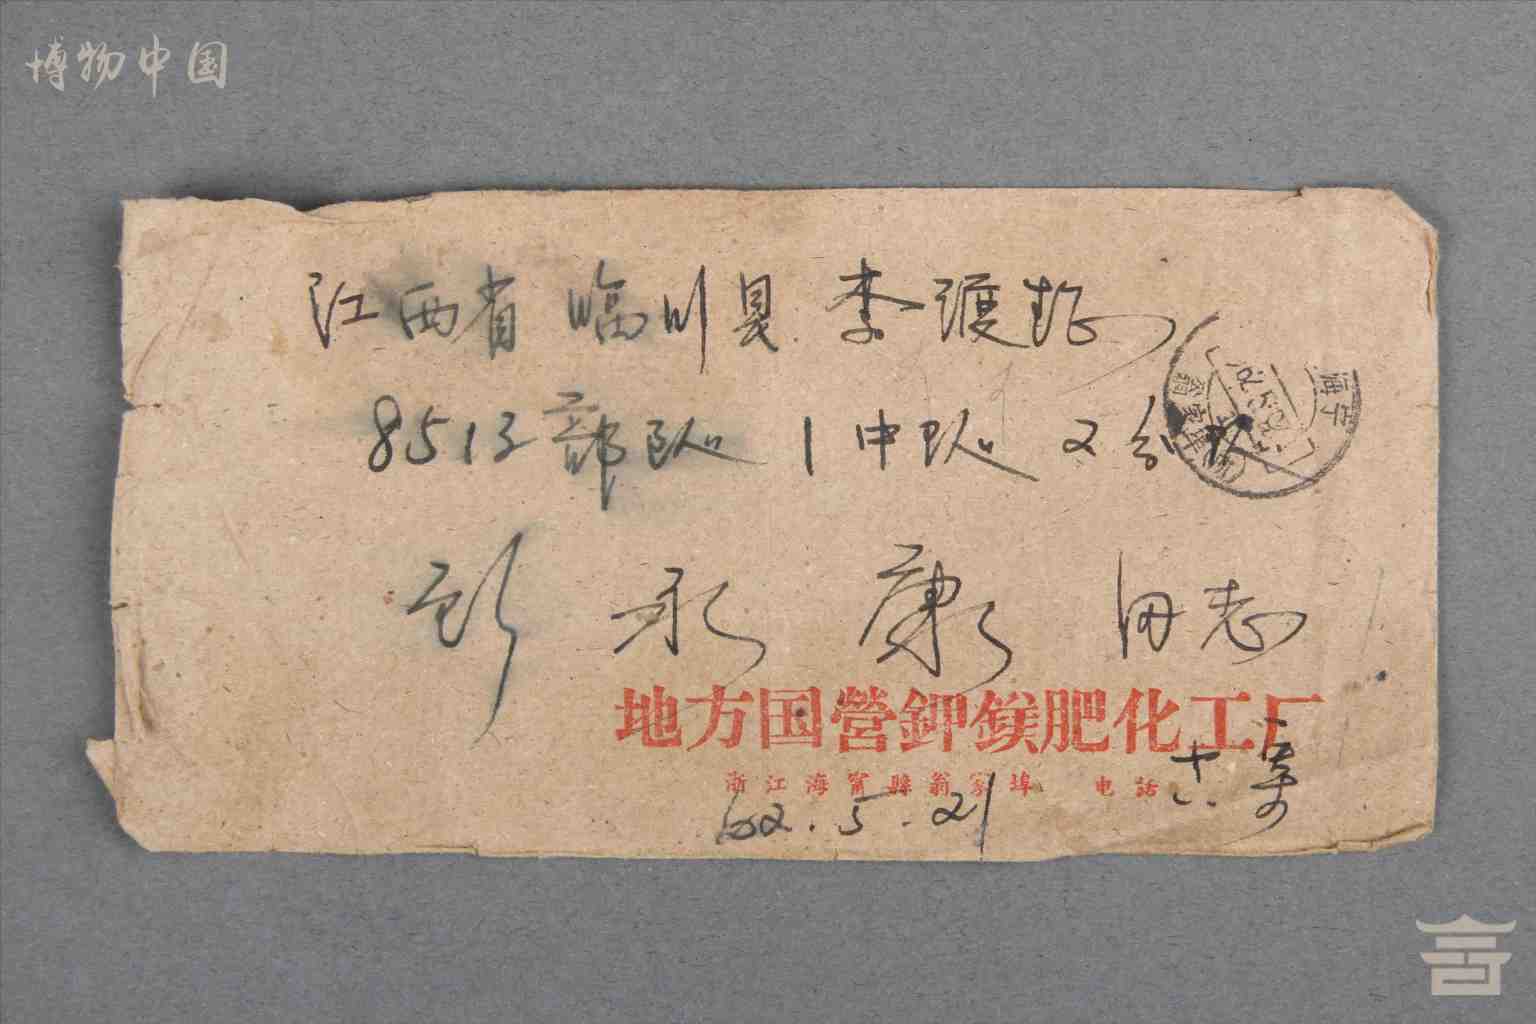 博物中国
江西省临川县李渡
8513部队 1中队 2分队
彭永康同志
海宁
地方国营鉀鎂肥化工厂
浙江海甯縣翁家埠 电話
62.5.21